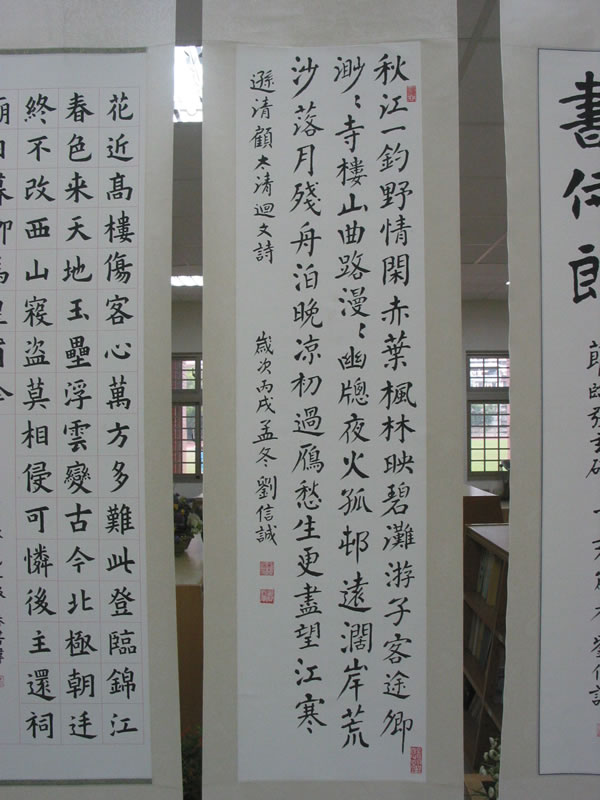 書侍郎
節臨張玄碑
秋江一釣野情閑赤葉楓林映碧灘游子客途鄉
渺〻寺樓山曲路漫〻幽牕夜火孤邨遠濶岸荒
沙落月殘舟泊晚凉初過鴈愁生更盡望江寒
遜清顧太清迴文詩 歲次丙戌孟冬劉信誠
花近髙樓傷客心萬方多難此登臨錦江
春色来天地玉壘浮雲變古今北極朝廷
終不改西山寇盜莫相侵可憐後主還祠
廟日暮聊為